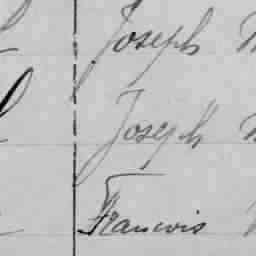 Joseph
Joseph
Francois